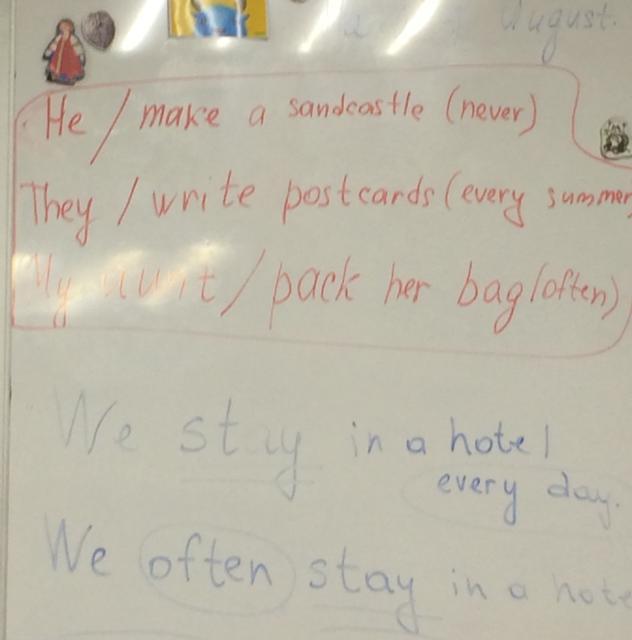 August.
He / make a sandcastle (never)
They / write postcards (every summer
My aunt / pack her bag (often)
We stay in a hotel
every day.
We often stay in a hote